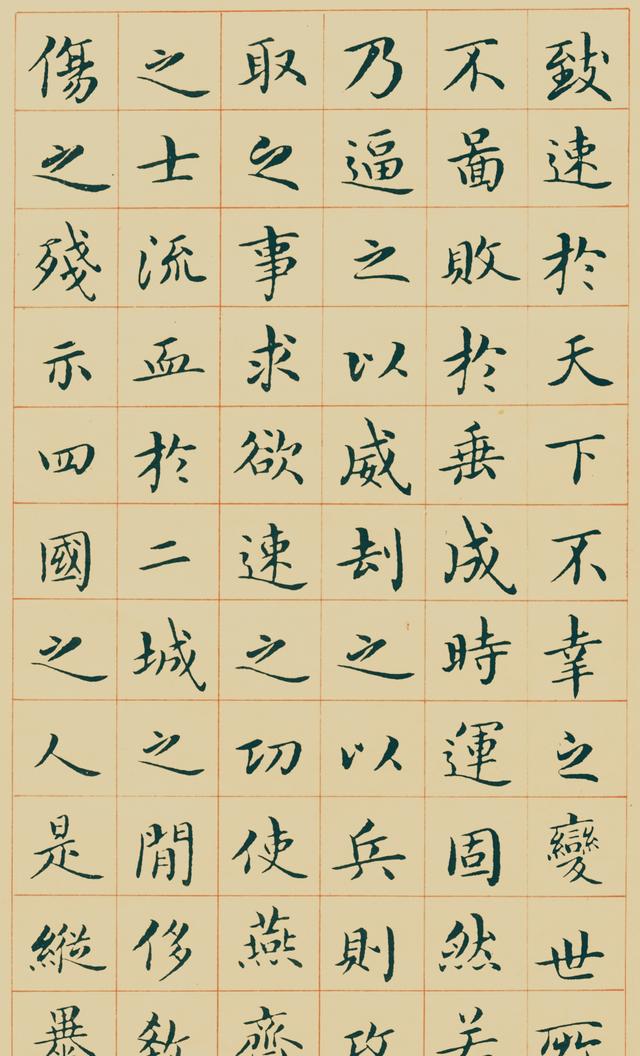 致速於天下不幸之變世所
不啚敗於垂成時運固然若
乃逼之以威刧之以兵則攻
取之事求欲速之功使燕齊
之士流血於二城之閒侈殺
傷之殘示四國之人是縱暴